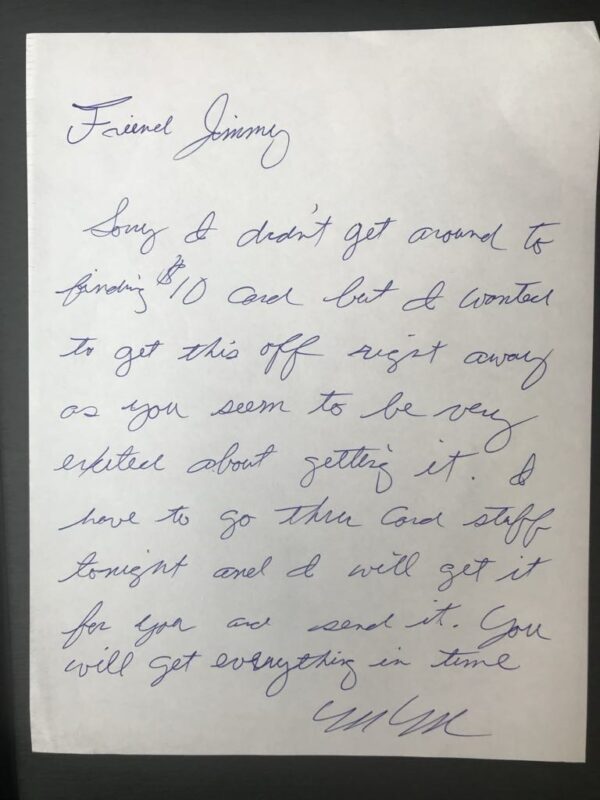 Friend Jimmy
Sorry I didn't get around to
finding $10 card but I wanted
to get this off right away
as you seem to be very
exited about getting it. I
have to go thru card stuff
tonight and I will get it
for you and send it. You
will get everything in time